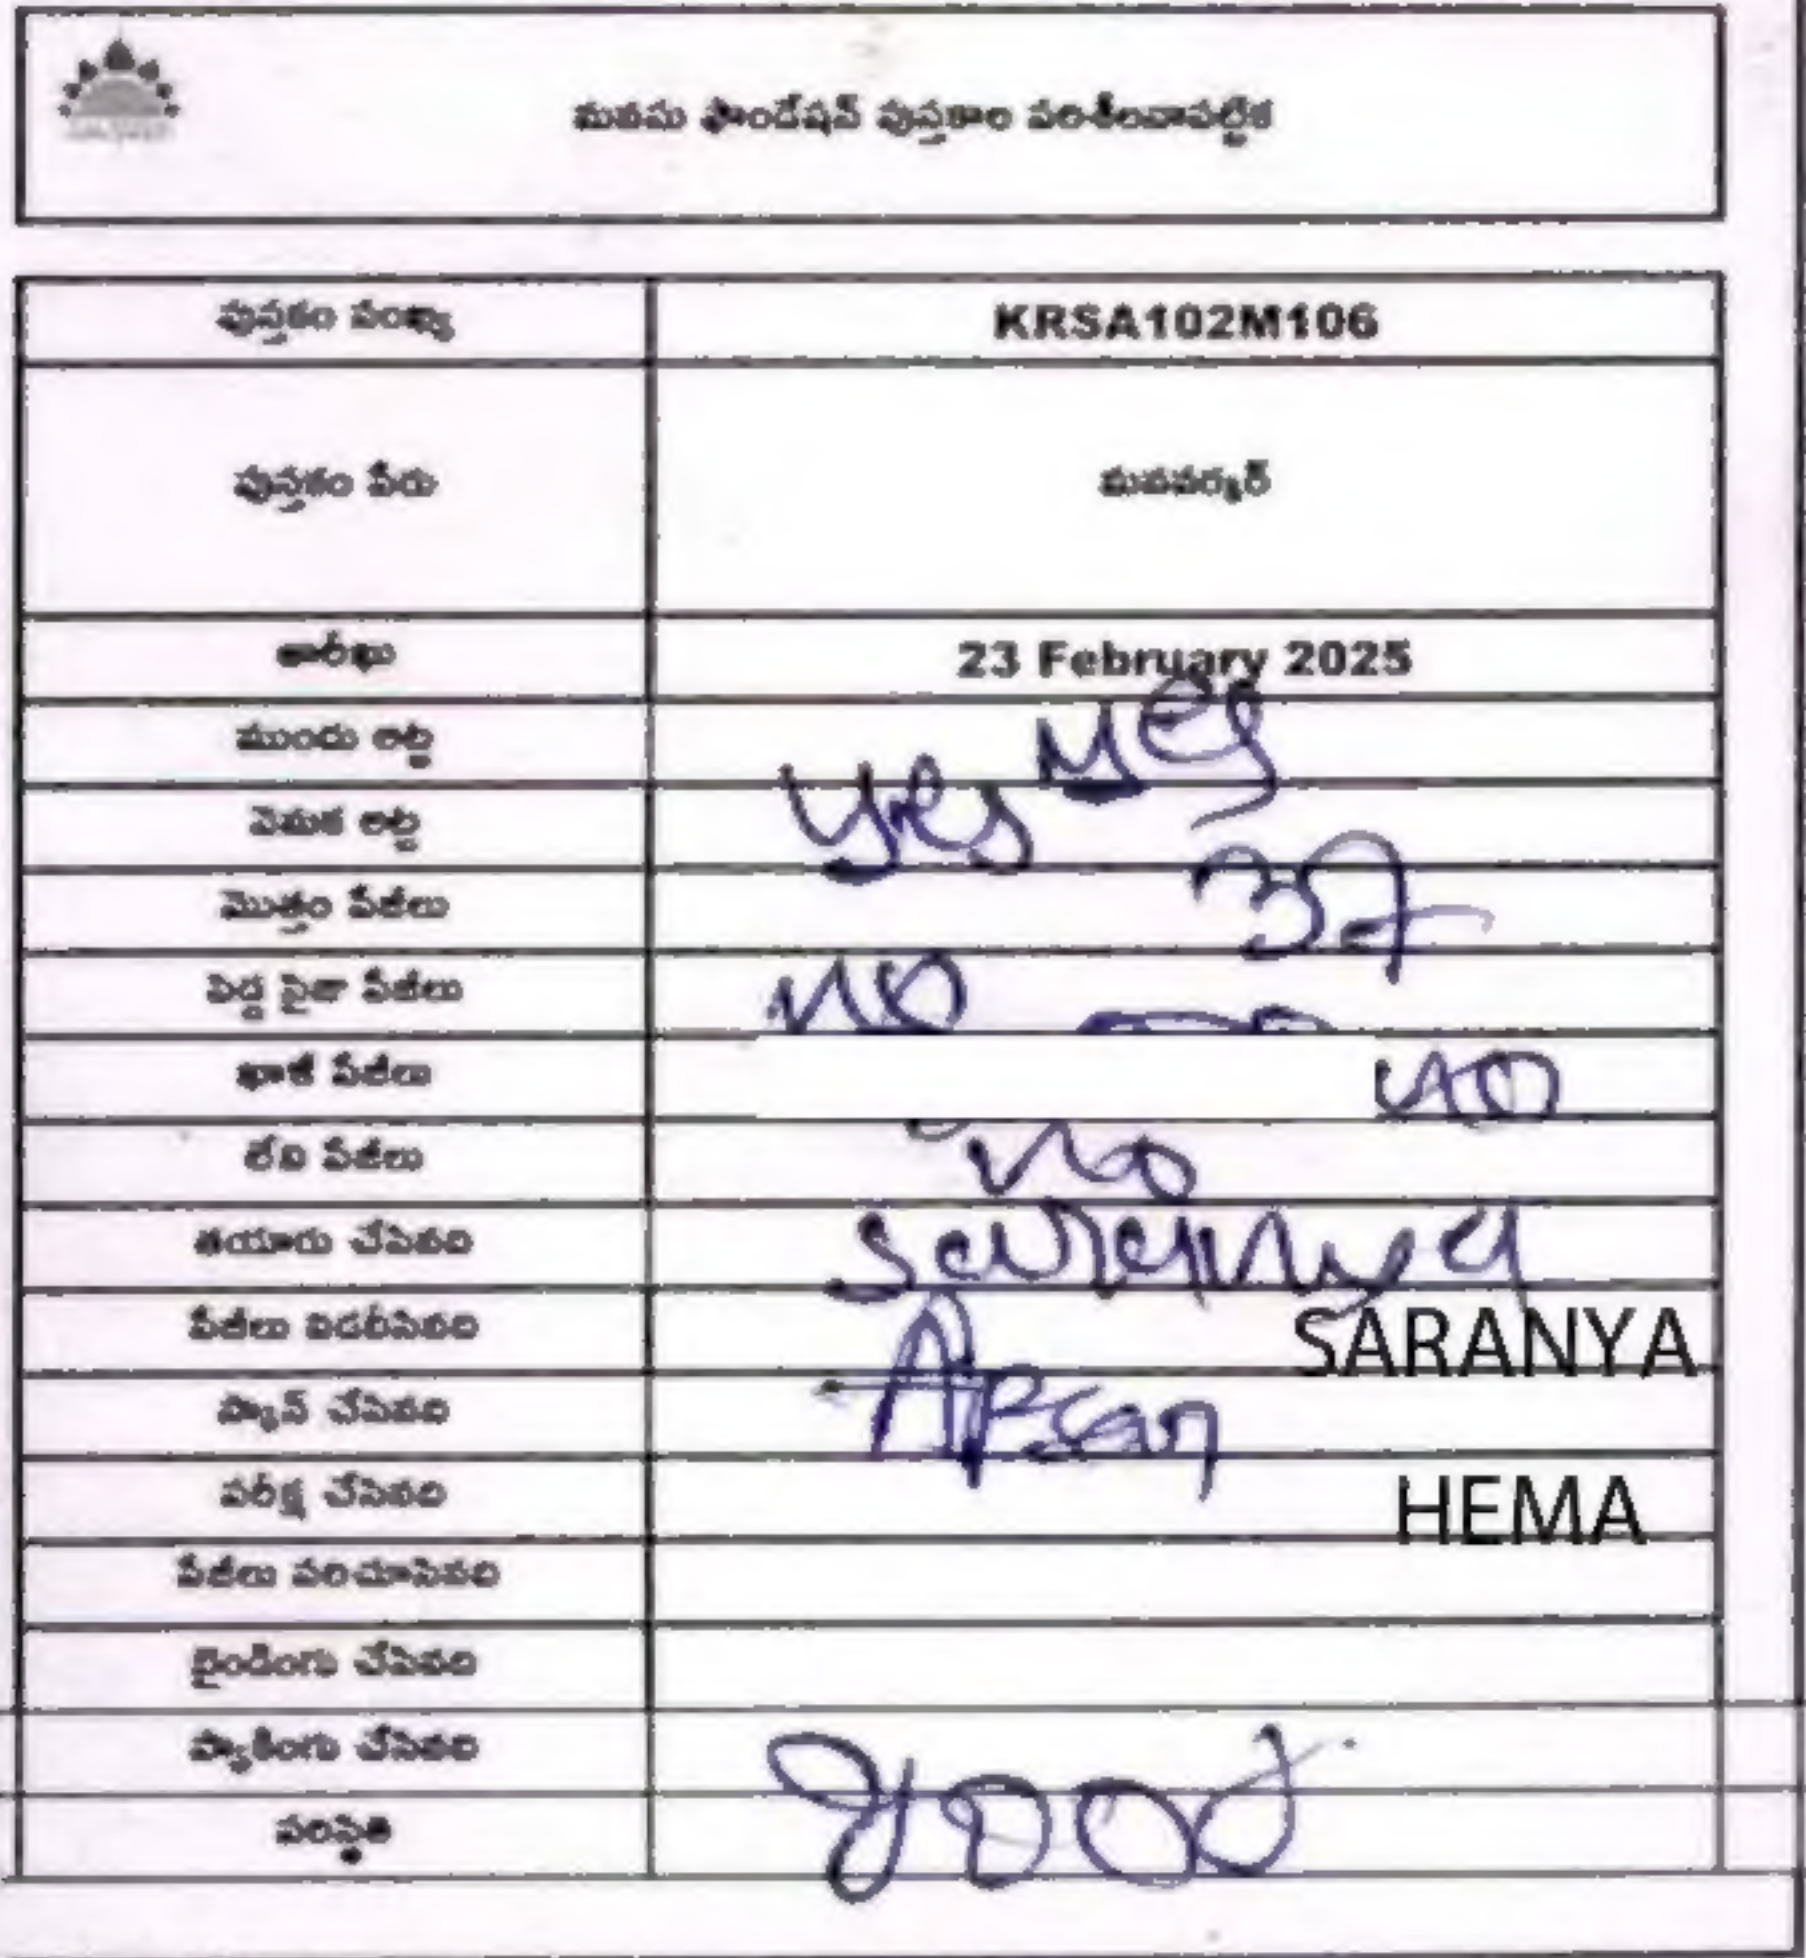 మనసు ఫౌండేషన్ పుస్తకాల పరిశీలనాపట్టిక
పుస్తకం సంఖ్య KRSA102M106
పుస్తకం పేరు
తారీఖు 23 February 2025
ముందు అట్ట yes
వెనుక అట్ట yes
మొత్తం పేజీలు 37
పెద్ద సైజు పేజీలు no
ఖాళీ పేజీలు no
లేని పేజీలు no
తయారు చేసినది Saranya
పేజీలు విడదీసినది SARANYA
స్కాన్ చేసినది
పరీక్ష చేసినది HEMA
పేజీలు సరిచూసినది
బైండింగు చేసినది
ప్యాకింగు చేసినది
పరిస్థితి good